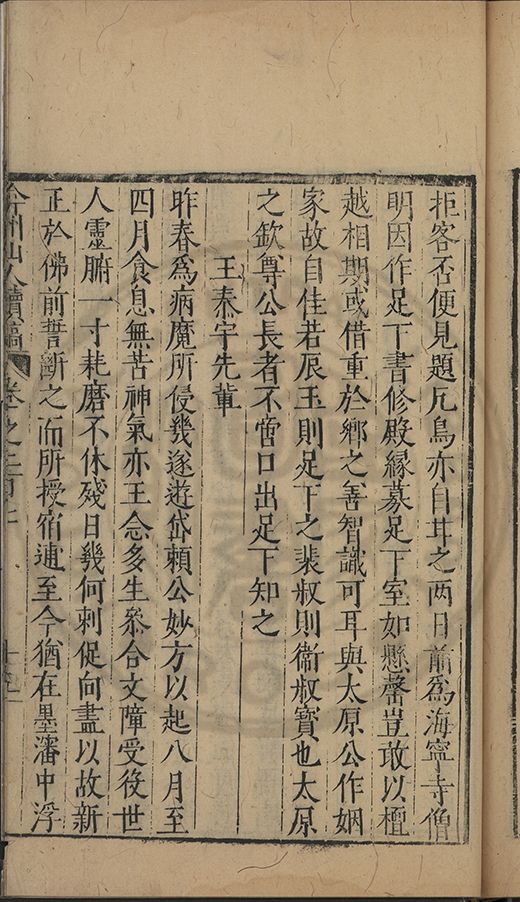 拒客否便見題凡鳥亦自甘之两日前爲海寧寺僧
明因作足下書修殿縁募足下室如懸罄豈敢以檀
越相期或借重於鄉之善智識可耳與太原公作姻
家故自佳若辰玉則足下之裴叔則衞叔寳也太原
之欽尊公長者不啻口出足下知之
王泰宇先輩
昨春爲病魔所侵幾遂遊岱頼公妙方以起八月至
四月食息無苦神氣亦王念多生叅合文障受役世
人靈腑一寸耗磨不休殘日幾何刺促向盡以故新
正於佛前誓斷之而所授宿逋至今猶在墨瀋中浮
弇州山人續稿 卷之